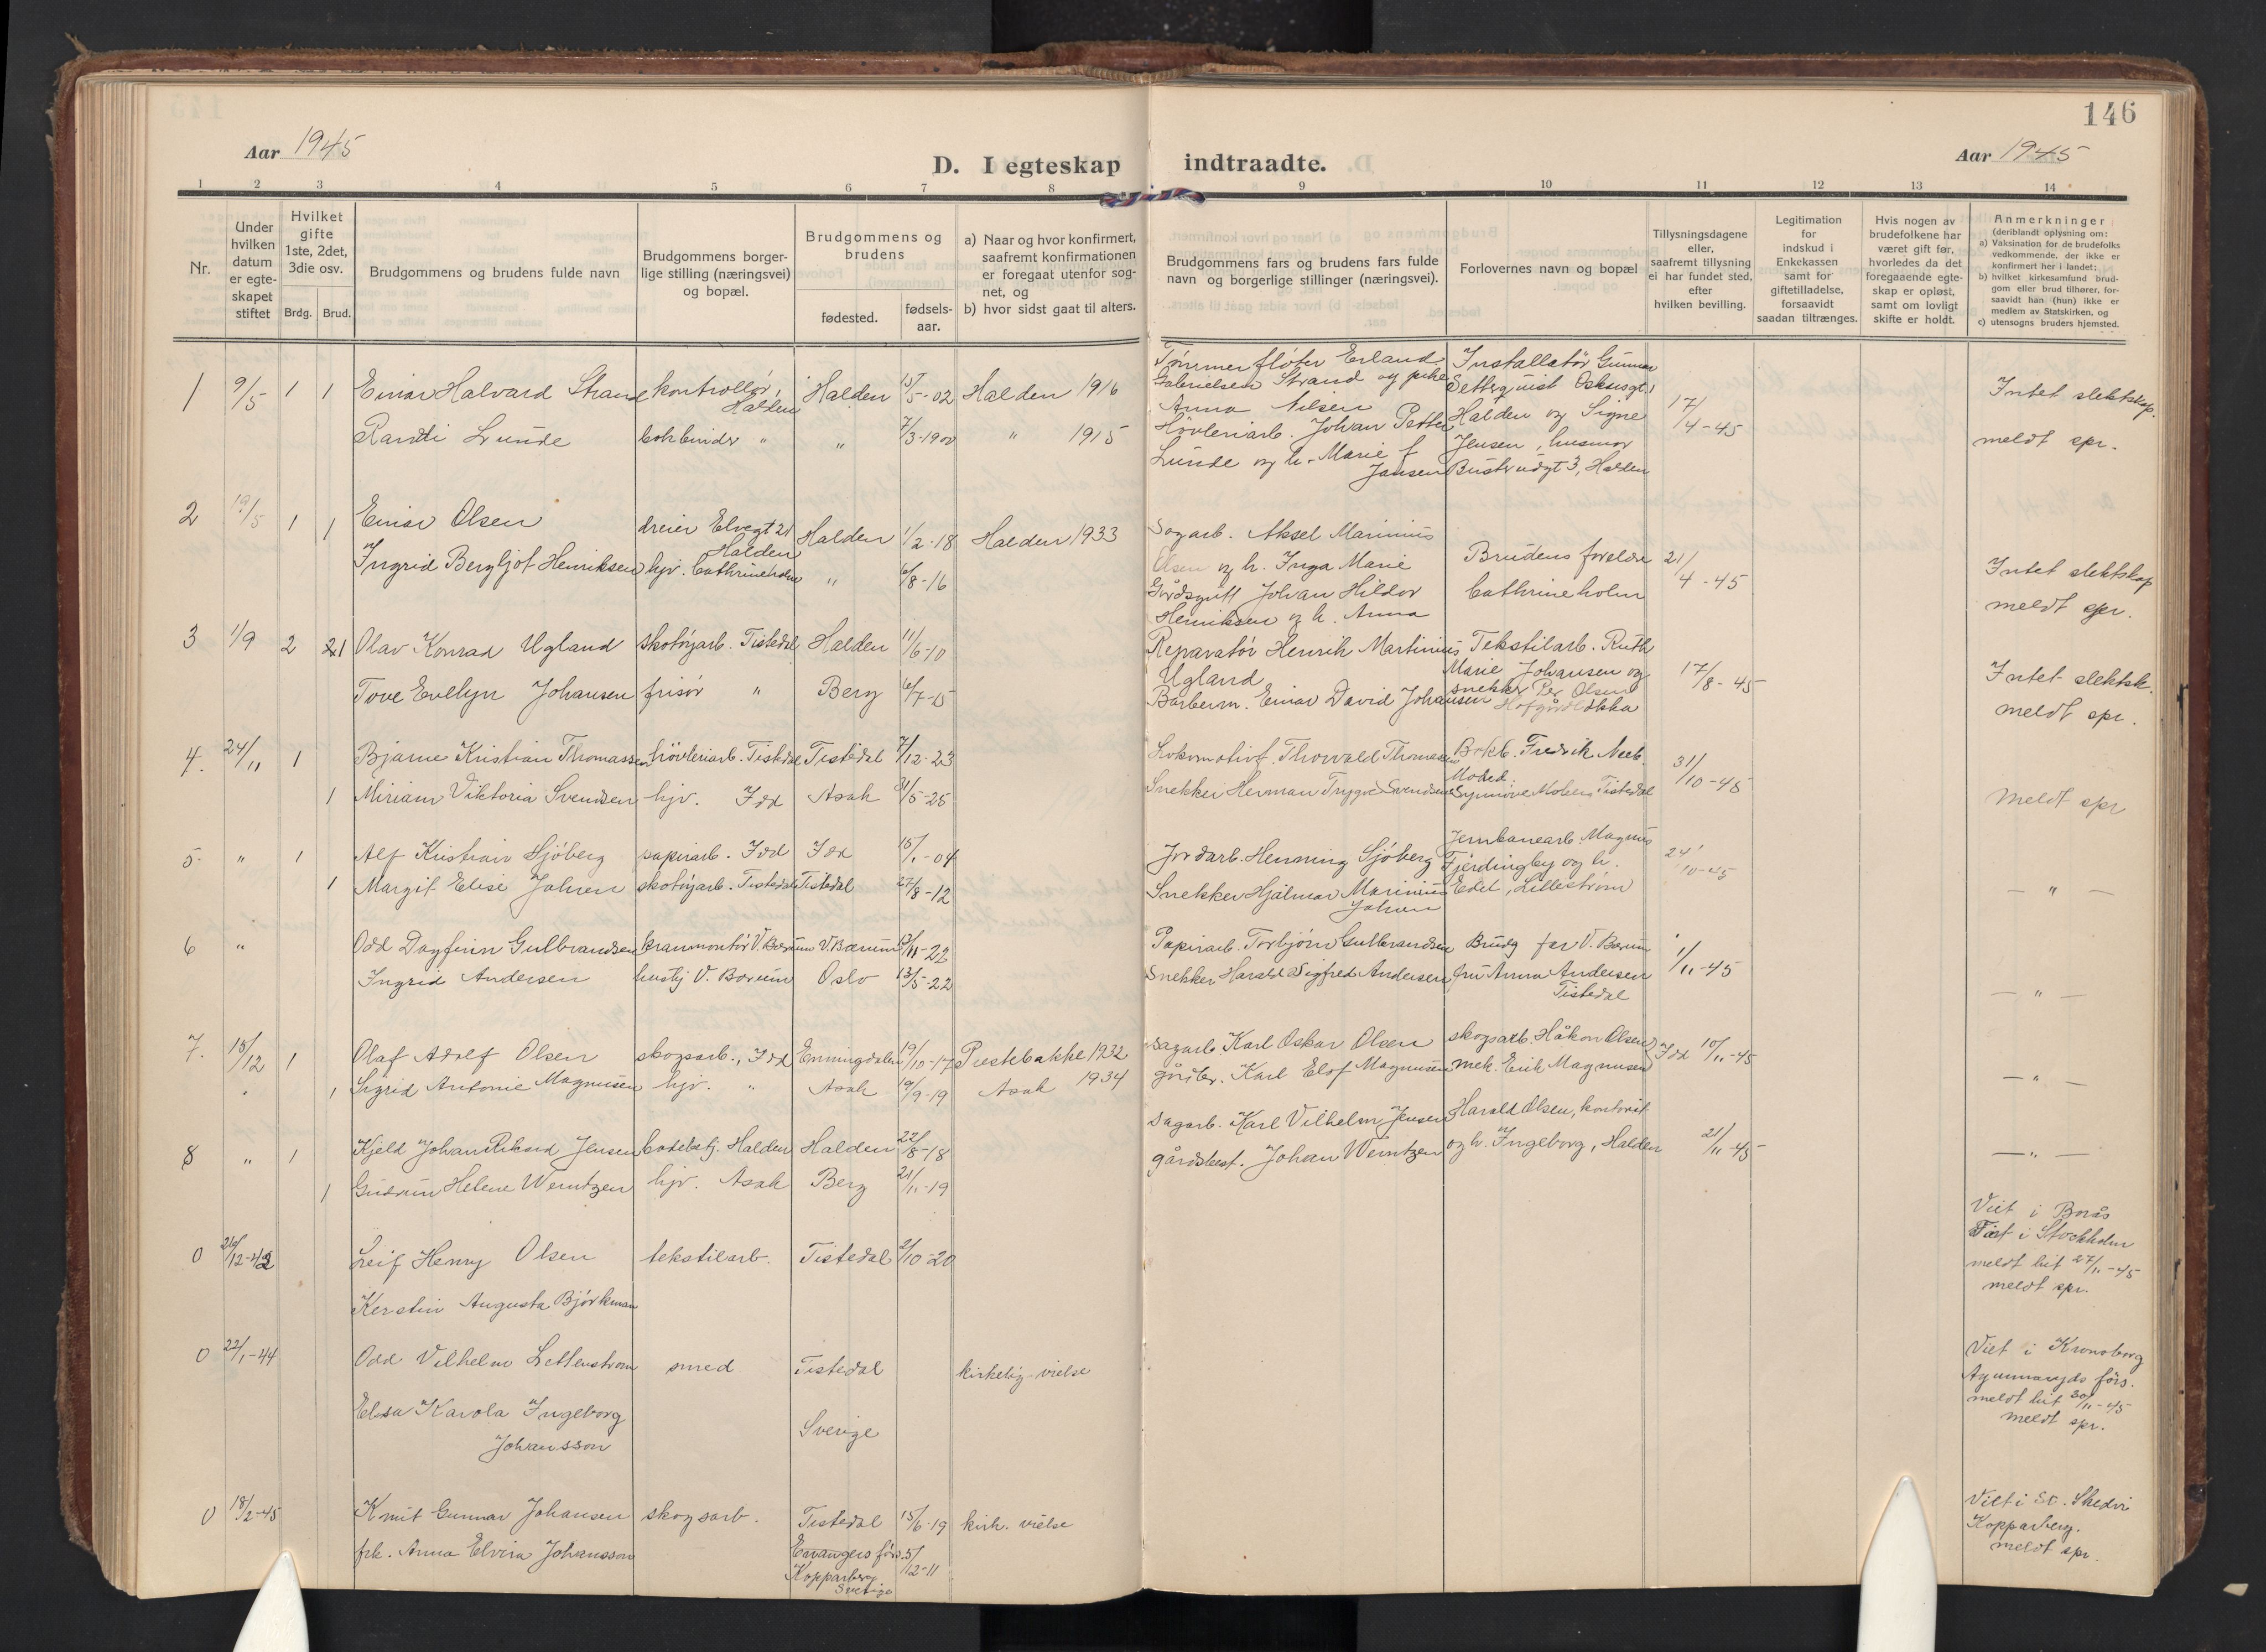 146
Aar 1945
D. I egteskap indtraadte.
Aar 1945
1 2 3 4 5 6 7 8 9 10 11 12 13 14
Nr.
Under hvilken datum er egte- skapet stiftet
Hvilket gifte 1ste, 2det, 3die osv.
Brdg. Brud.
Brudgommens og brudens fulde navn
Brudgommens borger- lige stilling (næringsvei) og bopæl.
Brudgommens og brudens
fødested.
fødsels- aar.
a) Naar og hvor konfirmert, saafremt konfirmationen er foregaat utenfor sog- net, og
b) hvor sidst gaat til alters.
Brudgommens fars og brudens fars fulde navn og borgerlige stillinger (næringsvei).
Forlovernes navn og bopæl
Tillysningsdagene eller, saafremt tillysning ei har fundet sted, efter hvilken bevilling.
Legitimation for indskud i Enkekassen samt for giftetilladelse, forsaavidt saadan tiltrænges.
Hvis nogen av brudefolkene har været gift før, hvorledes da det foregaaende egte- skap er opløst, samt om lovligt skifte er holdt.
Anmerkninger (deriblandt oplysning om:
a) Vaksination for de brudefolks vedkommende, der ikke er konfirmert her i landet;
b) hvilket kirkesamfund brud- gom eller brud tilhører, for- saavidt han (hun) ikke er medlem av Statskirken, og
c) utensogns bruders hjemsted.
1 9/5 1 1 Einar Halvard Strand kontrollør, Halden Halden 15/5-02 Halden 1916
Randi Lunde bokbinder " " 7/3-1900 " 1915
Tømmerfløter Erland Gabrielsen Strand og Anna Nilsen
Høvleriarb. Johan Petter Lunde og h. Marie f Jansen
Installatør Gunnar Setterquist Halden og Signe Jensen, husmor 3, Halden
17/4-45
Intet slektskap. meldt spr.
2 19/5 1 1 Einar Olsen dreier Elvegt 21 Halden Halden 1/2-18 Halden 1933
Ingrid Bergljot Henriksen hjv. Cathrineholm " 6/8-16
Sagarb. Aksel Marinius Olsen og h. Inga Marie
Gårdsgutt Johan Hildor Henriksen og h. Anna
Brudens foreldre Cathrineholm
21/4-45
Intet slektskap meldt spr.
3 1/9 2 1 Olav Konrad Ugland skotøyarb. Tistedal Halden 11/6-10
Tove Evelyn Johansen frisør " Berg 6/7-15
Reparatør Henrik Martinius Ugland
Barberm. Einar David Johansen
Tekstilarb. Ruth Marie Johansen og snekker Per Olsen Hofgårdløkka
17/8-45
Intet slektsk. meldt spr.
4. 24/11 1 Bjarne Kristian Thomassen høvleriarb. Tistedal Tistedal 7/12-23
1 Miriam Viktoria Svendsen hjv. Idd Asak 31/5-25
Lokomotivf. Thorvald Thomassen
Snekker Herman Trygve Svendsen
Fredrik Tistedal
31/10-45
meldt spr
5. " 1 Alf Kristian Sjöberg papirarb. Idd Idd 15/1-04
1 Margit Elise Johren skotøyarb. Tistedal Tistedal 27/8-12
Jordarb. Henning Sjöberg
Snekker Hjalmar Marinius Johren
Jernbanearb. Magnus Fjerdingby og h. Edel, Lillestrøm
24/10-45
— " —
6 " Odd Dagfinn Gulbrandsen kranmontör V. Bærum V. Bærum 13/11-22
Ingrid Andersen V. Bærum Oslo 13/5-22
Papirarb. Torbjørn Gulbrandsen
Snekker Harald Sigfred Andersen
Brudg far V. Bærum
fru Anna Andersen Tistedal
1/11-45
— " —
7. 15/12 1 Olaf Adolf Olsen skogsarb., Idd Enningdalen 19/10-17 Prestebakke 1932
" 1 Sigrid Antonie Magnusen hjv. " Asak 19/9-19 Asak 1934
sagarb. Karl Oskar Olsen
gårdbr. Karl Elof Magnusen
skogsarb. Håkon Olsen, Idd
mek. Erik Magnusen
10/11-45
— " —
8 " 1 Kjeld Johan Rikard Jensen Halden Halden 22/8-18
1 Gudrun Helene Werntzen hjv. Asak Berg 21/11-19
Sagarb. Karl Vilhelm Jensen
gårdsbest. Johan Werntzen
Harald Olsen, kontorist og h. Ingeborg, Halden
21/11-45
— " —
0 26/12-42 Leif Henry Olsen tekstilarb. Tistedal 2/10-20
Kerstin Augusta Björkman
Viet i Borås
i Stockholm
meldt hit 27/11-45
meldt spr.
0 22/1-44 Odd Vilhelm Lettenstrøm smed Tistedal kirkelig vielse
Elsa Karola Ingeborg Johansson Sverige
Viet i Kronoberg
förs.
meldt hit 30/11-45
meldt spr.
0 18/2-45 Knut Gunnar Johansen skogsarb. Tistedal 15/6-19 kirk. vielse
frk. Anna Elvira Johansson förs. Kopparberg Sverige 5/12-11
Viet i St. Skedvi
Kopparberg.
meldt spr.